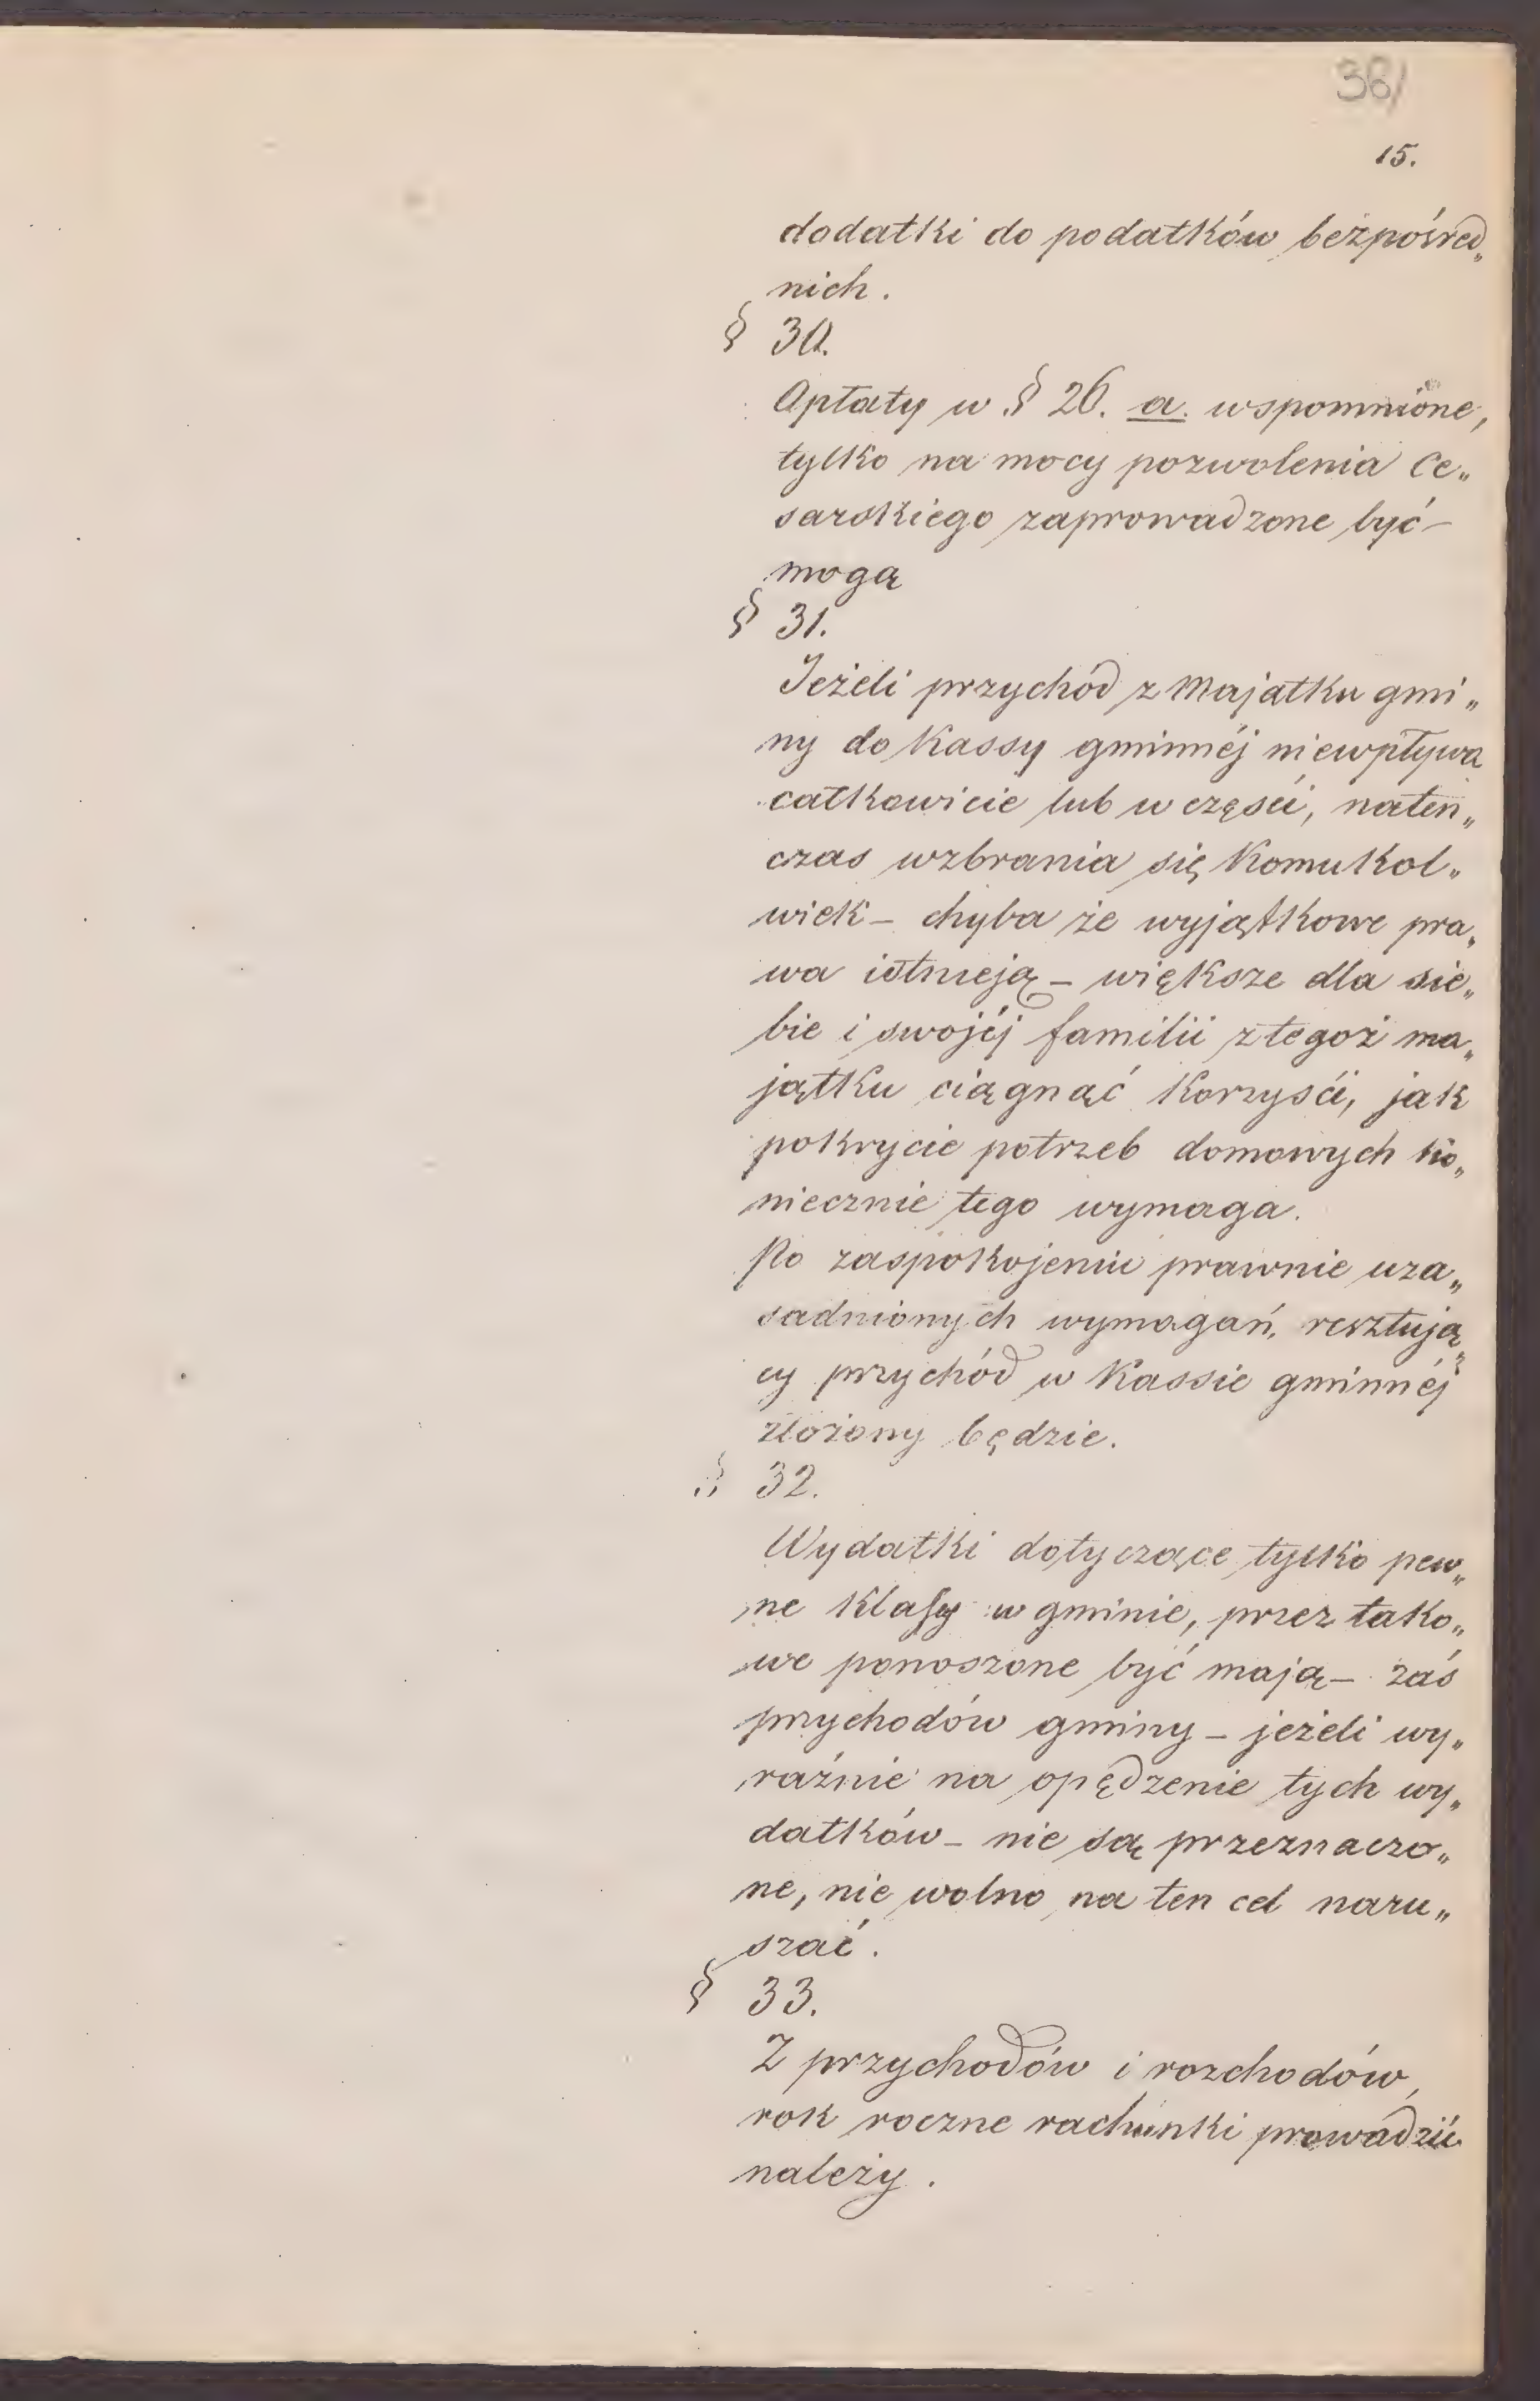 36/
15.
dodatki do podatków bezpóśred„
nich.
§ 30.
Opłaty w § 26. a. wspomnione,
tylko na mocy pozwolenia Ce„
sarskiego zaprowadzone być —
mogą
§ 31.
Jeżeli przychód z Majątku gmi„
ny do Kassy gminnéj niewpływa
całkowicie lub w części, naten„
czas wzbrania się Komukol„
wiek — chyba że wyjątkowe pra„
wa istnieją — większe dla sie„
bie i swojéj familii z tegoż ma„
jątku ciągnąć Korzyści, jak
pokrycie potrzeb domowych ko„
niecznie tego wymaga.
Po zaspokojeniu prawnie uza„
sadnionych wymagań, resztują„
cy przychód w Kassie gminnéj
złożony będzie.
§ 32.
Wydatki dotyczące tylko pew„
ne Klassy w gminie, przez tako„
we ponoszone być mają — zaś
przychodów gminy — jeżeli wy„
raźnie na opędzenie tych wy„
datków — nie są przeznaczo„
ne, nie wolno na ten cel naru„
szać.
§ 33.
Z przychodów i rozchodów,
rok roczne rachunki prowadzić
należy.